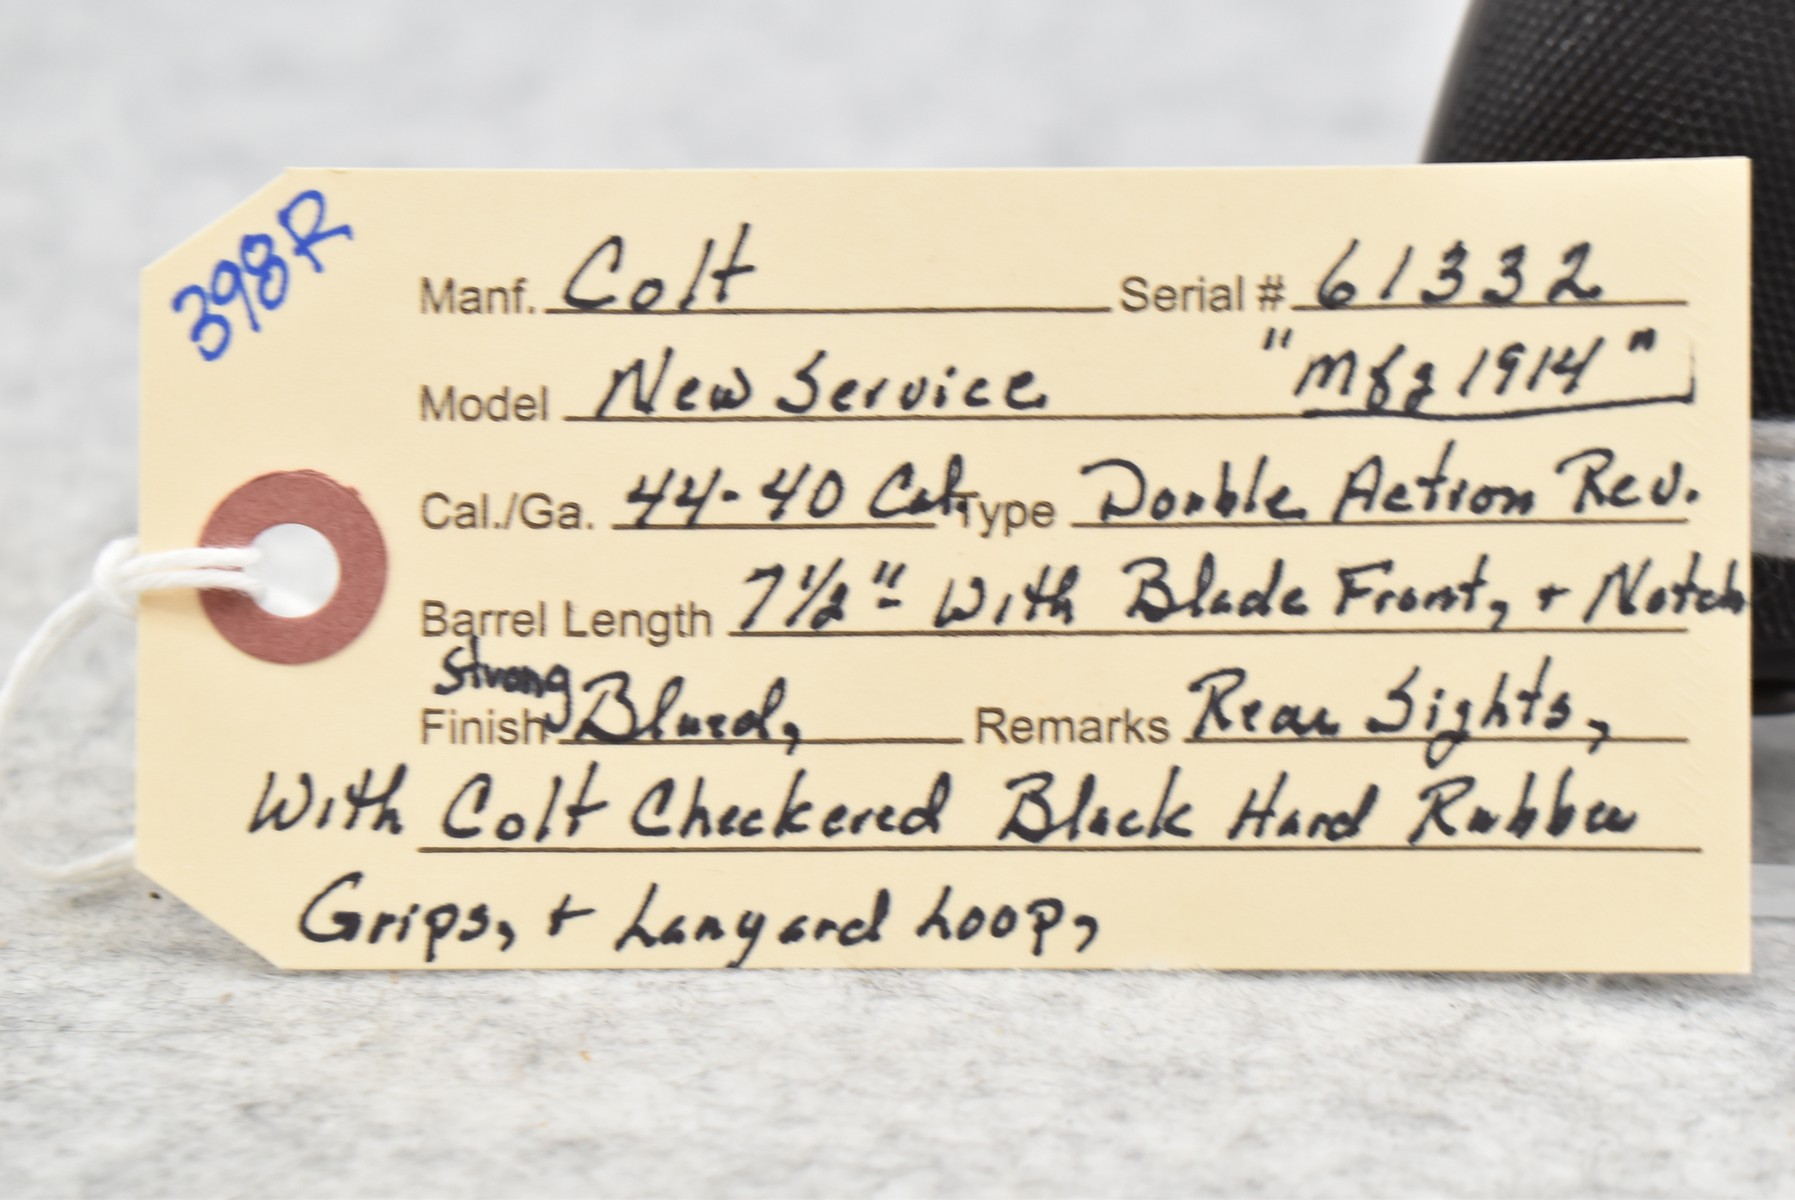 398R
Manf. Colt Serial # 61332
Model New Service "Mfg 1914"
Cal./Ga. 44-40 Cal. Type Double Action Rev.
Barrel Length 7 1/2" With Blade Front, + Notch
Finish Strong Blued, Remarks Rear Sights,
With Colt Checkered Black Hard Rubber
Grips, + Lanyard Loop,